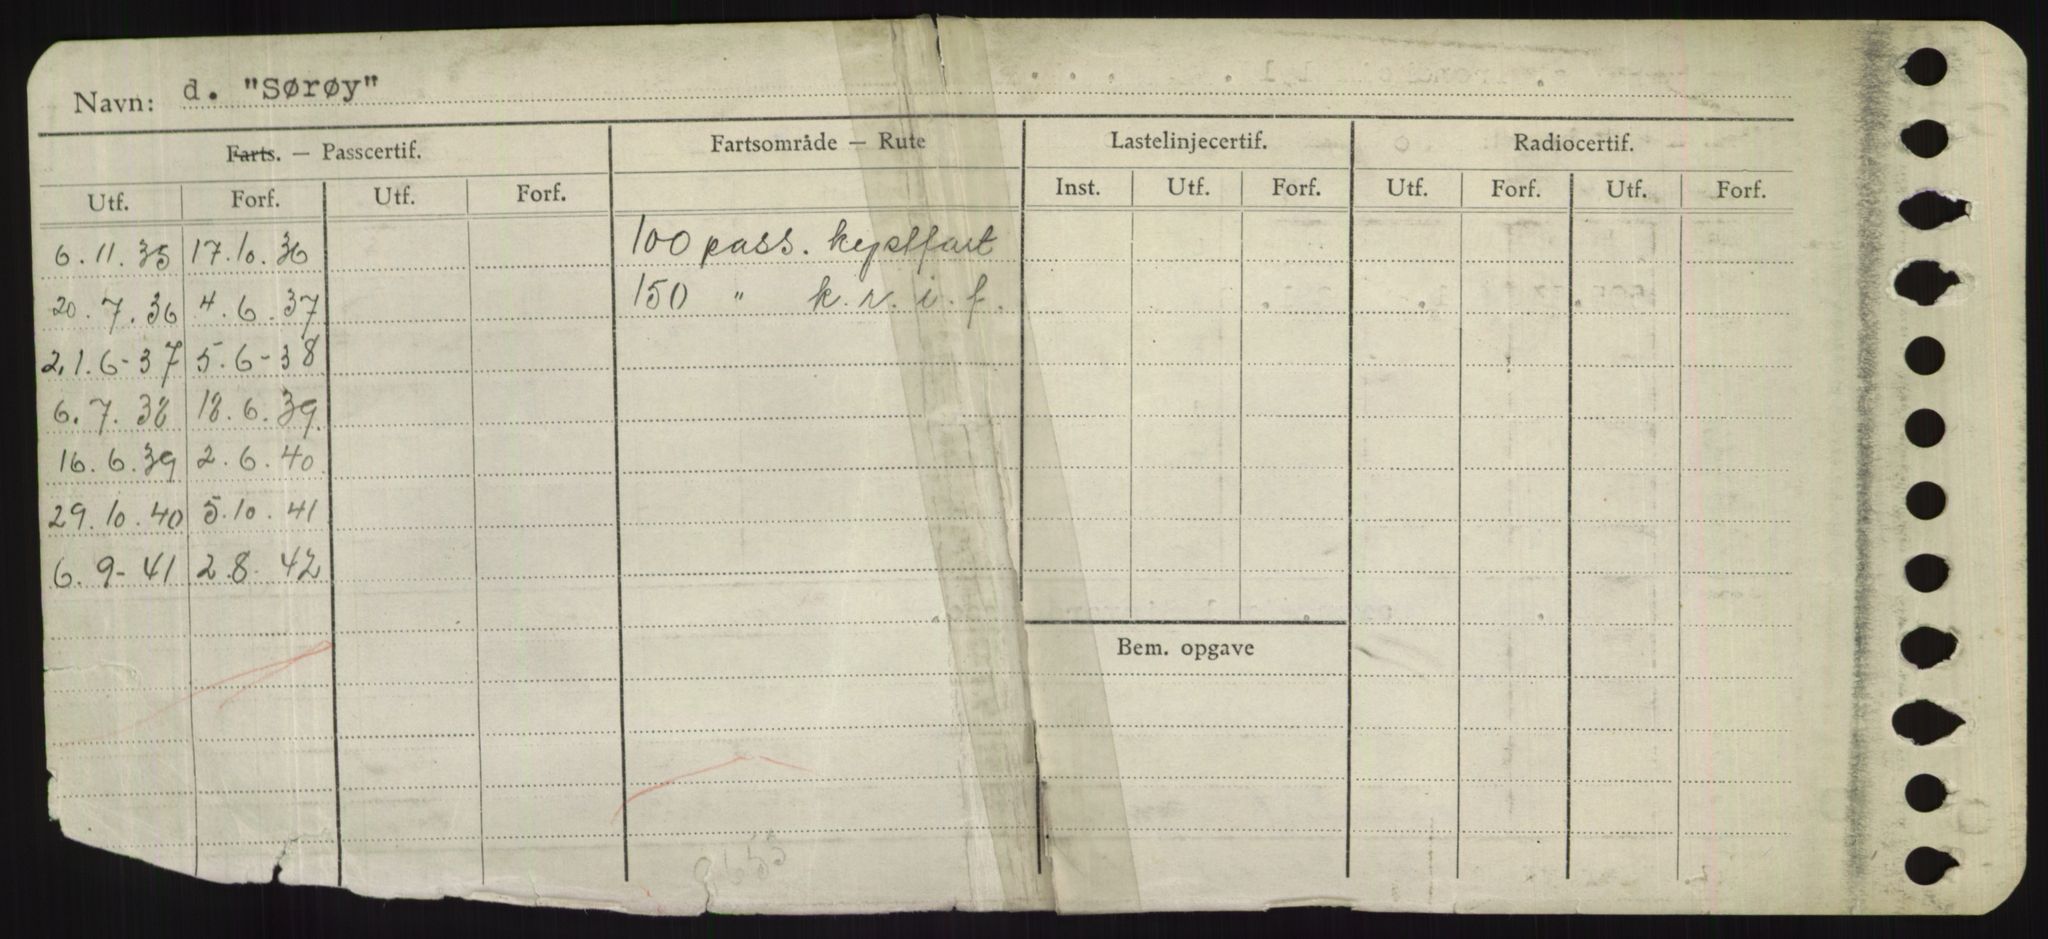 Navn: d. "Sørøy"
Farts. — Passcertif. Fartsområde — Rute Lastelinjecertif. Radiocertif.
Utf. Forf. Utf. Forf. Inst. Utf. Forf. Utf. Forf. Utf. Forf.
6.11.35 17.10.36 100 pass. kystfart
20.7.36 4.6.37 150 " k.r.i.f.
21.6-37 5.6-38
6.7.38 18.6.39
16.6.39 2.6.40
29.10.40 5.10.41
6.9-41 2.8.42
Bem. opgave